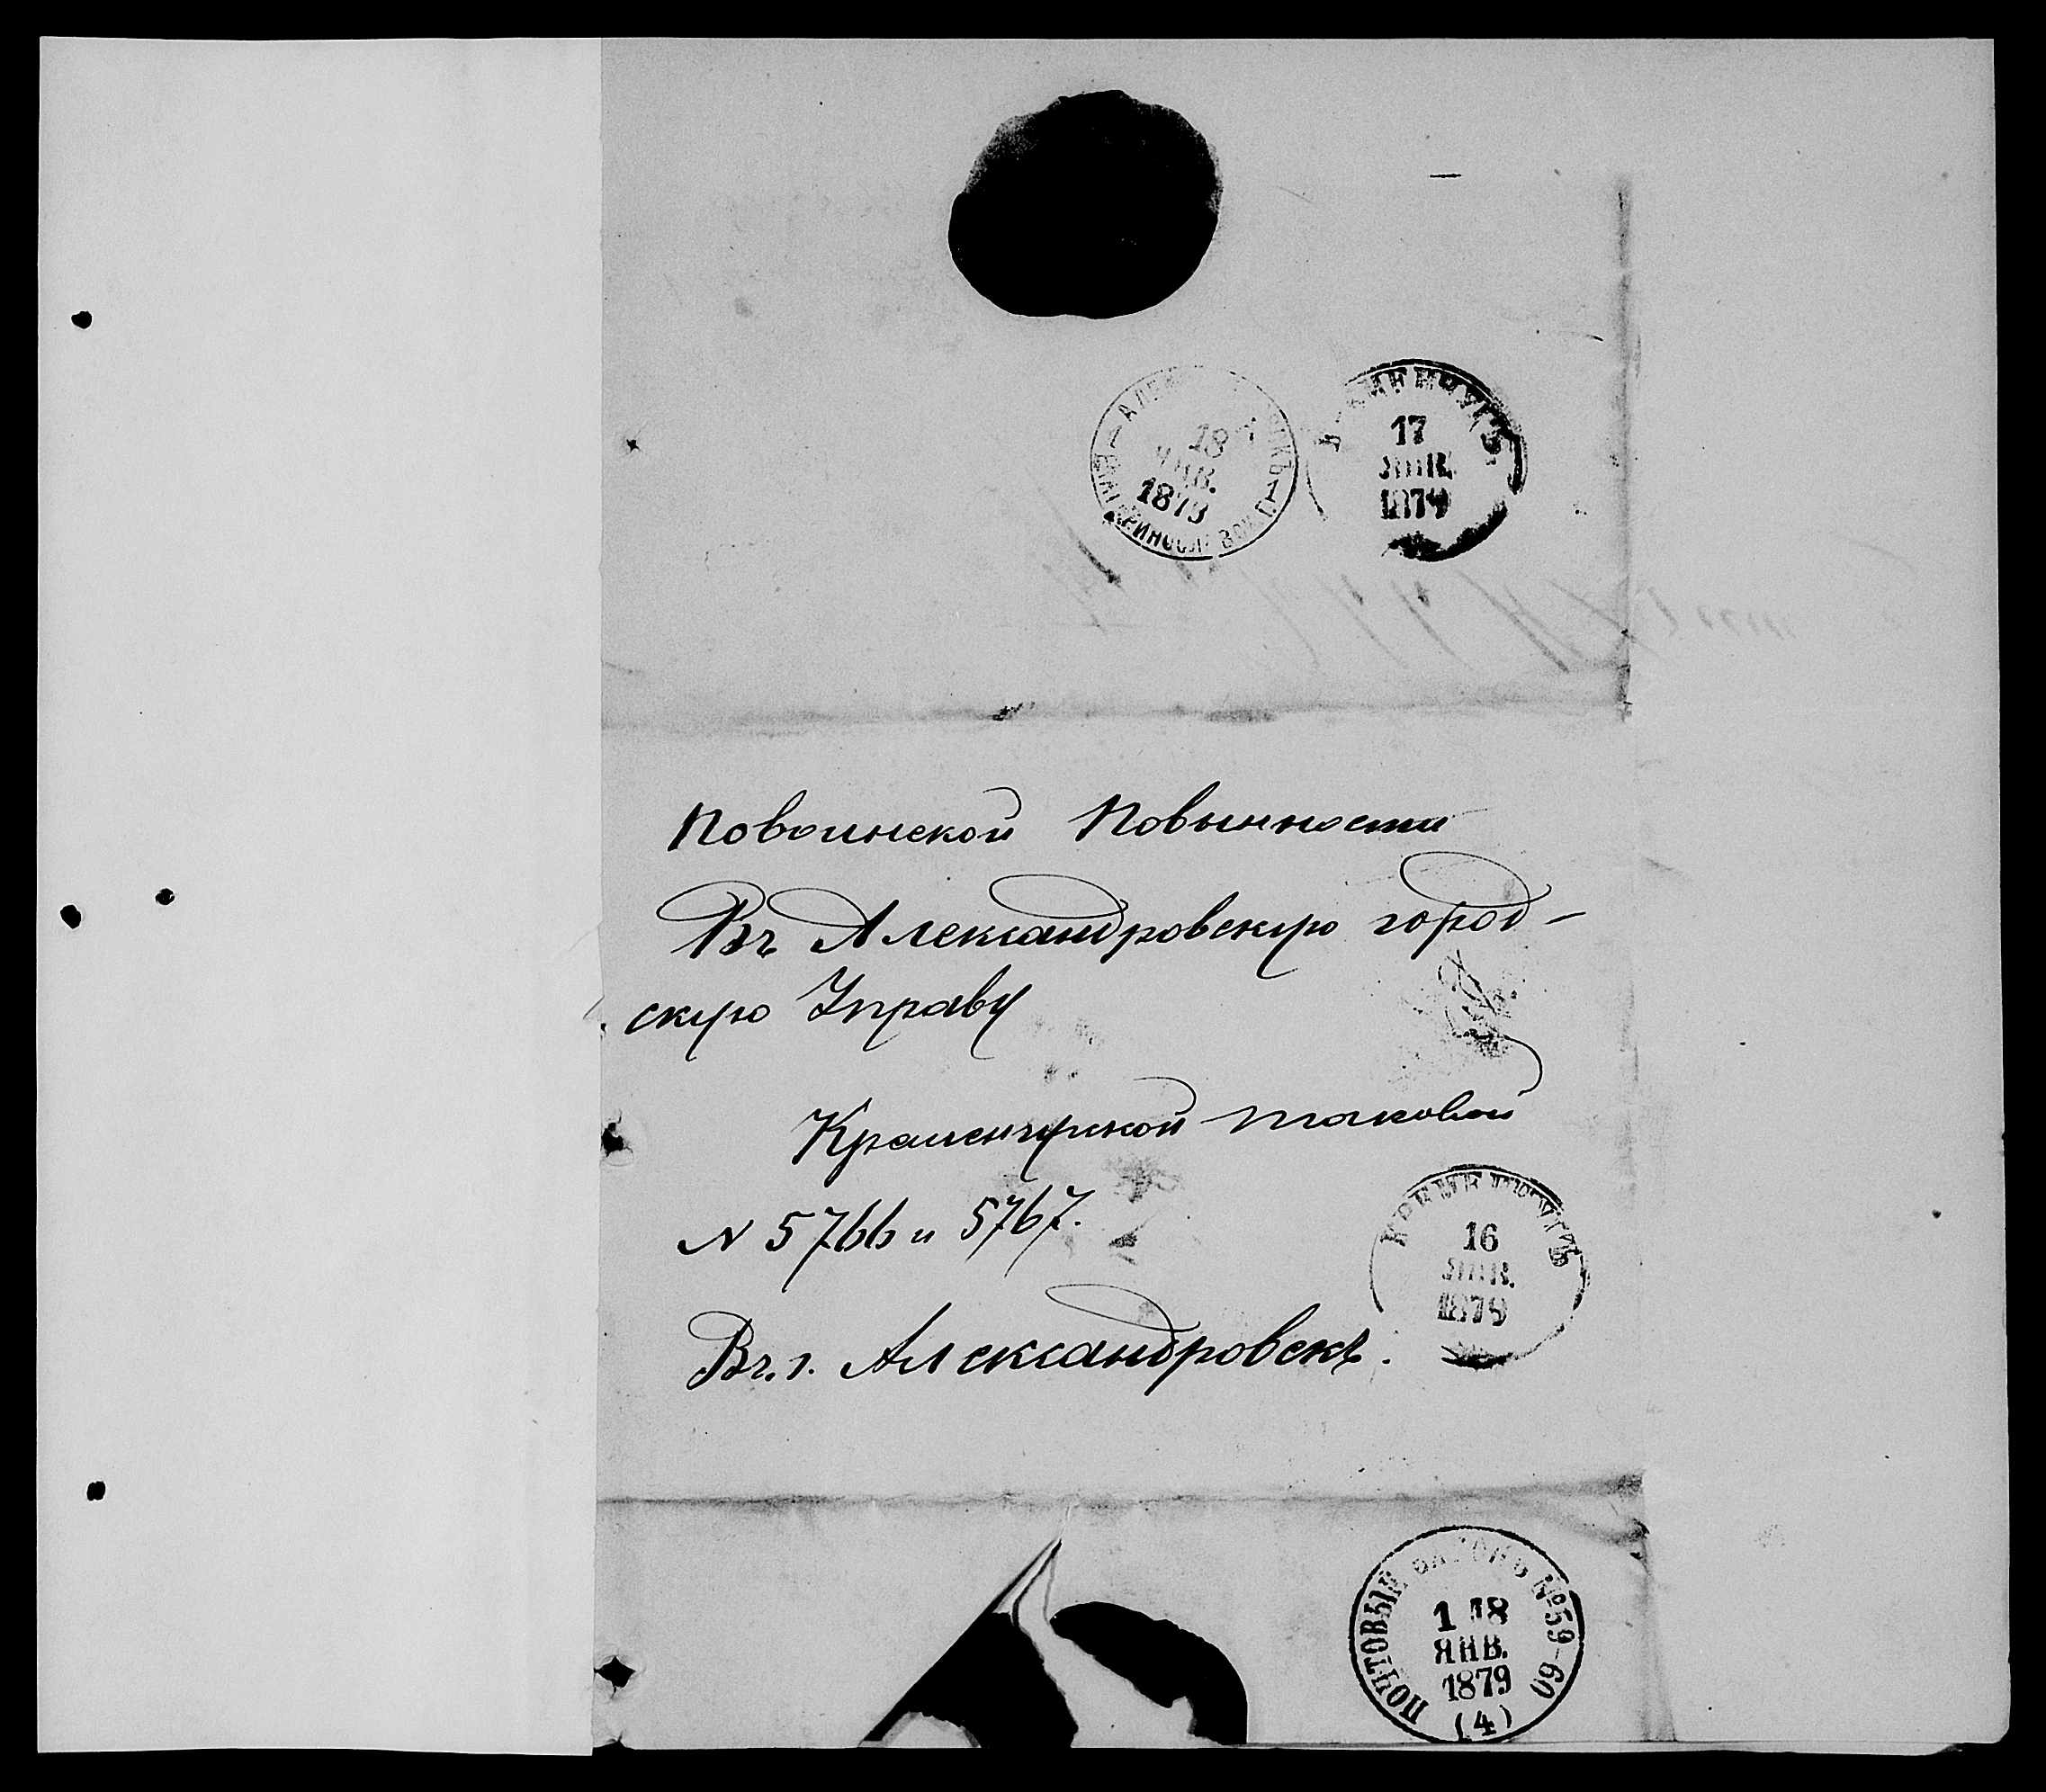 18
ЯНВ.
1879
КРЕМЕНЧУГЪ
17
ЯНВ.
1879
Повоинской Повинности
Въ Александровскую город-
скую Управу
Кременчугской таковой
N 5766 и 5767.
Въ г. Александровскъ.
КРЕМЕНЧУГЪ
16
ЯНВ.
1879
ПОЧТОВЫЙ ВАГОНЪ №59-60
1 18
ЯНВ.
1879
(4)